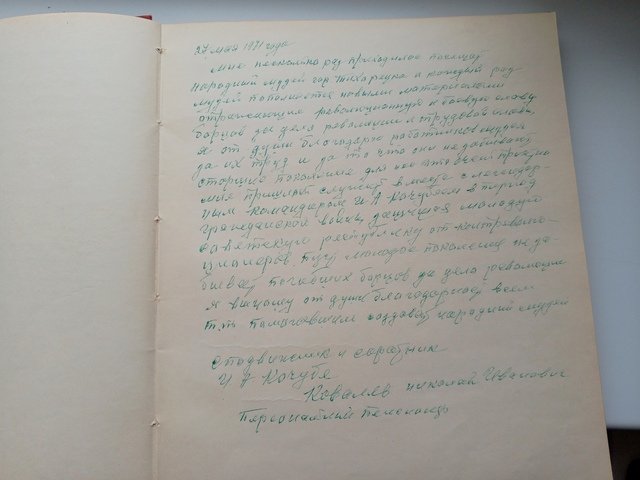 27 мая 1971 года
мне несколько раз приходилос посещат
народный музей гор Тихарецка и каждый раз
музей пополняется новыми материалами
отражающие революционную и боевую славу
барцов за дела революции и трудовой славы
я от души благодарю работников музея
за их труд и за то что они не забивают
старшие поколение для нас это очень приятно
мне пришлос служит вместе с легендар
ным командиром И А Кочубеем в период
гражданской воины, защищая молодую
саветскую республику от контрреволю-
ционеров, пуст молодое поколение не за
бивает погибших барцов за дела революции
я выношу от души благодарност всем
т.т. помагавшим создават народний музей
сподвижник и соратник
И А Кочубя
Ковалев Николай Иванович
Персональний пенсионер